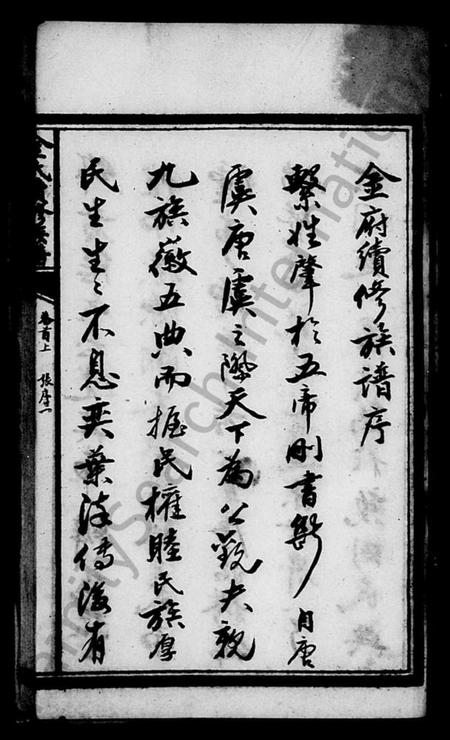 金府續修族譜序
繫姓肇於五帝刪書斷自唐
虞唐虞之際天下為公觀夫親
九族徽五典而握民權睦民族厚
民生生々不息奕葉流傳後有
卷首上 張序一